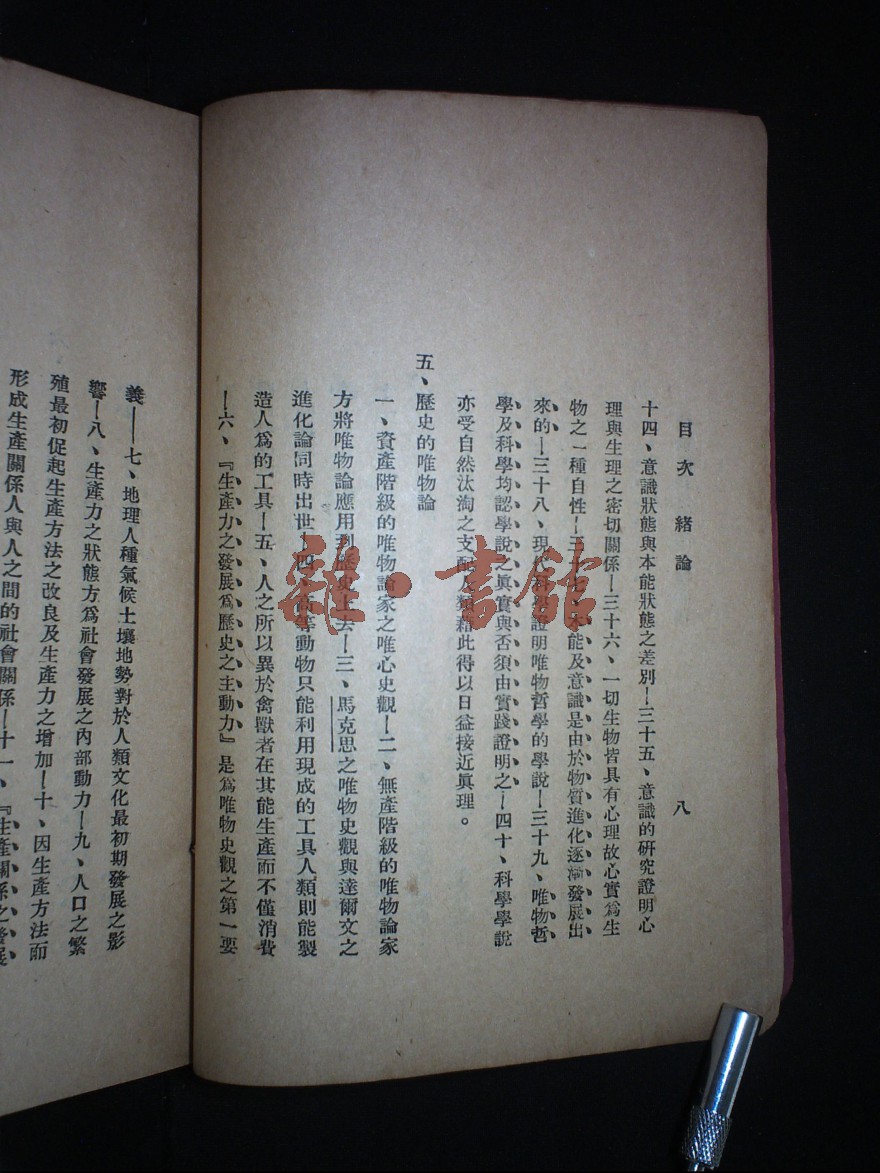 目次 緒論 八
十四、意識狀態與本能狀態之差別—三十五、意識的研究證明心
理與生理之密切關係—三十六、一切生物皆具有心理故心實爲生
物之一種自性—三十七、本能及意識是由於物質進化逐漸發展出
來的—三十八、現代科學證明唯物哲學的學說—三十九、唯物哲
學及科學均認學說之眞實與否須由實踐證明之—四十、科學學說
亦受自然汰淘之支配人類藉此得以日益接近眞理。
五、歷史的唯物論
一、資產階級的唯物論家之唯心史觀—二、無產階級的唯物論家
方將唯物論應用到歷史上去—三、馬克思之唯物史觀與達爾文之
進化論同時出世—四、高等動物只能利用現成的工具人類則能製
造人爲的工具—五、人之所以異於禽獸者在其能生產而不僅消費
—六、『生產力之發展爲歷史之主動力』是爲唯物史觀之第一要
義——七、地理人種氣候土壤地勢對於人類文化最初期發展之影
響—八、生產力之狀態方爲社會發展之內部動力—九、人口之繁
殖最初促起生產方法之改良及生產力之增加—十、因生產方法而
形成生產關係人與人之間的社會關係—十一、『生產關係之發展
雜·書館